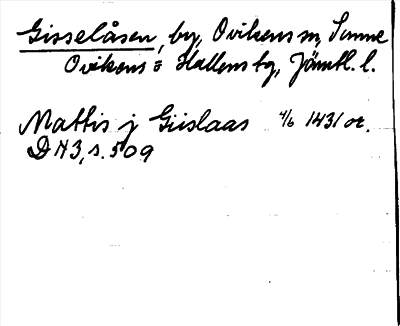 Gisselåsen, by, Ovikens sn, Sunne
Ovikens o Hallens tg, Jämtl. l.
Mattis j Giislaas 4/6 1431 or.
DN3, s. 509